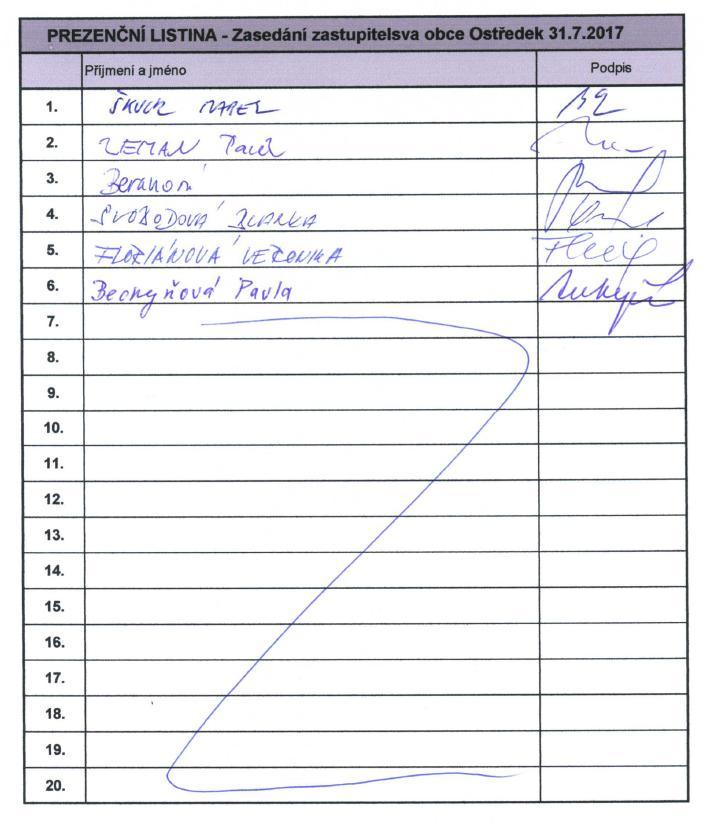 PREZENČNÍ LISTINA - Zasedání zastupitelsva obce Ostředek 31.7.2017
Příjmení a jméno Podpis
1.
2. ZEMAN Pavel
3.
4. SVOBODOVÁ BLANKA
5. FLORIÁNOVÁ VERONIKA
6. Bechyňová Pavla
7.
8.
9.
10.
11.
12.
13.
14.
15.
16.
17.
18.
19.
20.